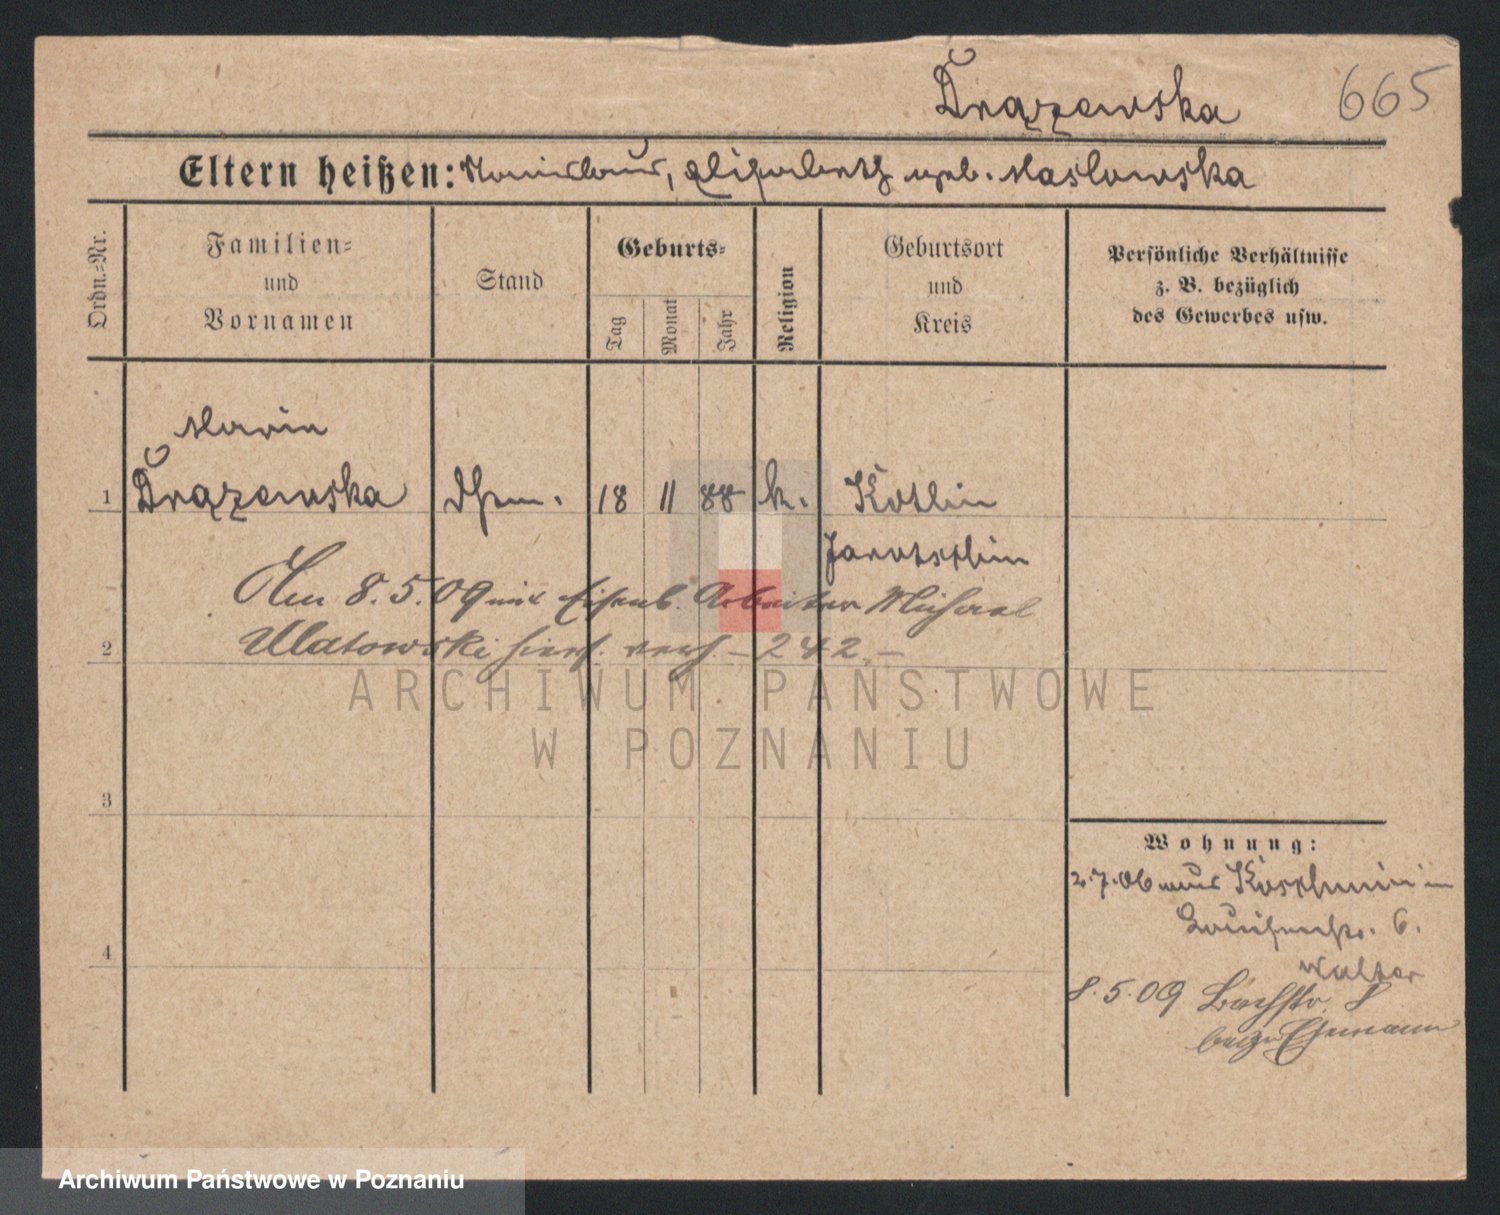 Drązewska 665
Eltern heißen: Stanislaus, Elisabeth geb. Maslowska
Ordn.=Nr.
Familien=
und
Vornamen
Stand
Geburts=
Tag
Monat
Jahr
Religion
Geburtsort
und
Kreis
Persönliche Verhältnisse
z. B. bezüglich
des Gewerbes usw.
Maria
1 Drązewska 18 11 88 k. Kotlin
Jarotschin
Am 8.5.09 mit Eisenb. Arbeiter Michael
2 Ulatowski hier 242.-
ARCHIWUM PAŃSTWOWE
W POZNANIU
3
4
Wohnung:
2.7.06 aus Koschmin in
Louisenstr. 6.
Walter
8.5.09 Bachstr. 8
Ehemann
Archiwum Państwowe w Poznaniu